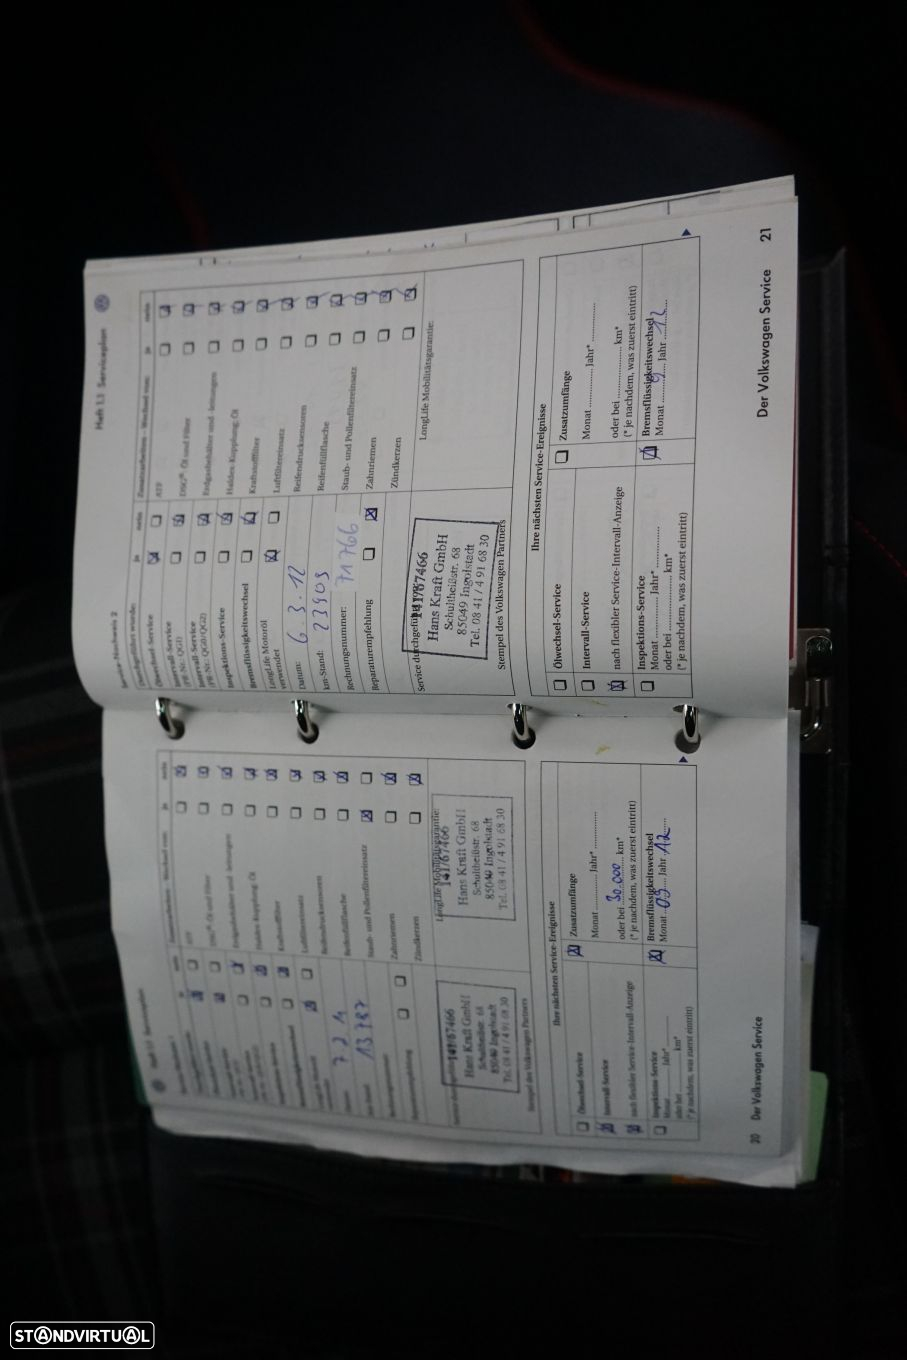 Heft 1.1 Serviceplan
Service-Nachweis 1
Zusatzarbeiten - Wechsel von:
ja
nein
ATF
DSG®-Öl und Filter
Erdgasbehälter und -leitungen
Haldex-Kupplung: Öl
Kraftstofffilter
Luftfiltereinsatz
Reifendrucksensoren
Reifenfüllflasche
Staub- und Pollenfiltereinsatz
Zahnriemen
Zündkerzen
13787
LongLife Mobilitätsgarantie:
141/67466
Hans Kraft GmbH
Schultheißstr. 68
85049 Ingolstadt
Tel. 08 41 / 4 91 68 30
141/67466
Hans Kraft GmbH
Schultheißstr. 68
85049 Ingolstadt
Tel. 08 41 / 4 91 68 30
Stempel des Volkswagen Partners
Ihre nächsten Service-Ereignisse
Ölwechsel-Service
Intervall-Service
nach flexibler Service-Intervall-Anzeige
Inspektions-Service
Monat Jahr*
oder bei km*
(* je nachdem, was zuerst eintritt)
Zusatzumfänge
Monat Jahr*
oder bei 30.000 km*
(* je nachdem, was zuerst eintritt)
Bremsflüssigkeitswechsel
Monat 09 Jahr 12
20 Der Volkswagen Service
Heft 1.1 Serviceplan
Service-Nachweis 2
Durchgeführt wurde:
ja
nein
Ölwechsel-Service
Intervall-Service
(PR-Nr. QG1)
Intervall-Service
(PR-Nr. QG0/QG2)
Inspektions-Service
Bremsflüssigkeitswechsel
LongLife Motoröl
verwendet
Datum: 6.3.12
km-Stand: 23909
Rechnungsnummer: 71766
Reparaturempfehlung
Zusatzarbeiten - Wechsel von:
ja
nein
ATF
DSG®-Öl und Filter
Erdgasbehälter und -leitungen
Haldex-Kupplung: Öl
Kraftstofffilter
Luftfiltereinsatz
Reifendrucksensoren
Reifenfüllflasche
Staub- und Pollenfiltereinsatz
Zahnriemen
Zündkerzen
Service durchgeführt
141/67466
Hans Kraft GmbH
Schultheißstr. 68
85049 Ingolstadt
Tel. 08 41 / 4 91 68 30
Stempel des Volkswagen Partners
LongLife Mobilitätsgarantie:
Ihre nächsten Service-Ereignisse
Ölwechsel-Service
Intervall-Service
nach flexibler Service-Intervall-Anzeige
Inspektions-Service
Monat Jahr*
oder bei km*
(* je nachdem, was zuerst eintritt)
Zusatzumfänge
Monat Jahr*
oder bei km*
(* je nachdem, was zuerst eintritt)
Bremsflüssigkeitswechsel
Monat 9 Jahr 12
Der Volkswagen Service 21
STANDVIRTUAL